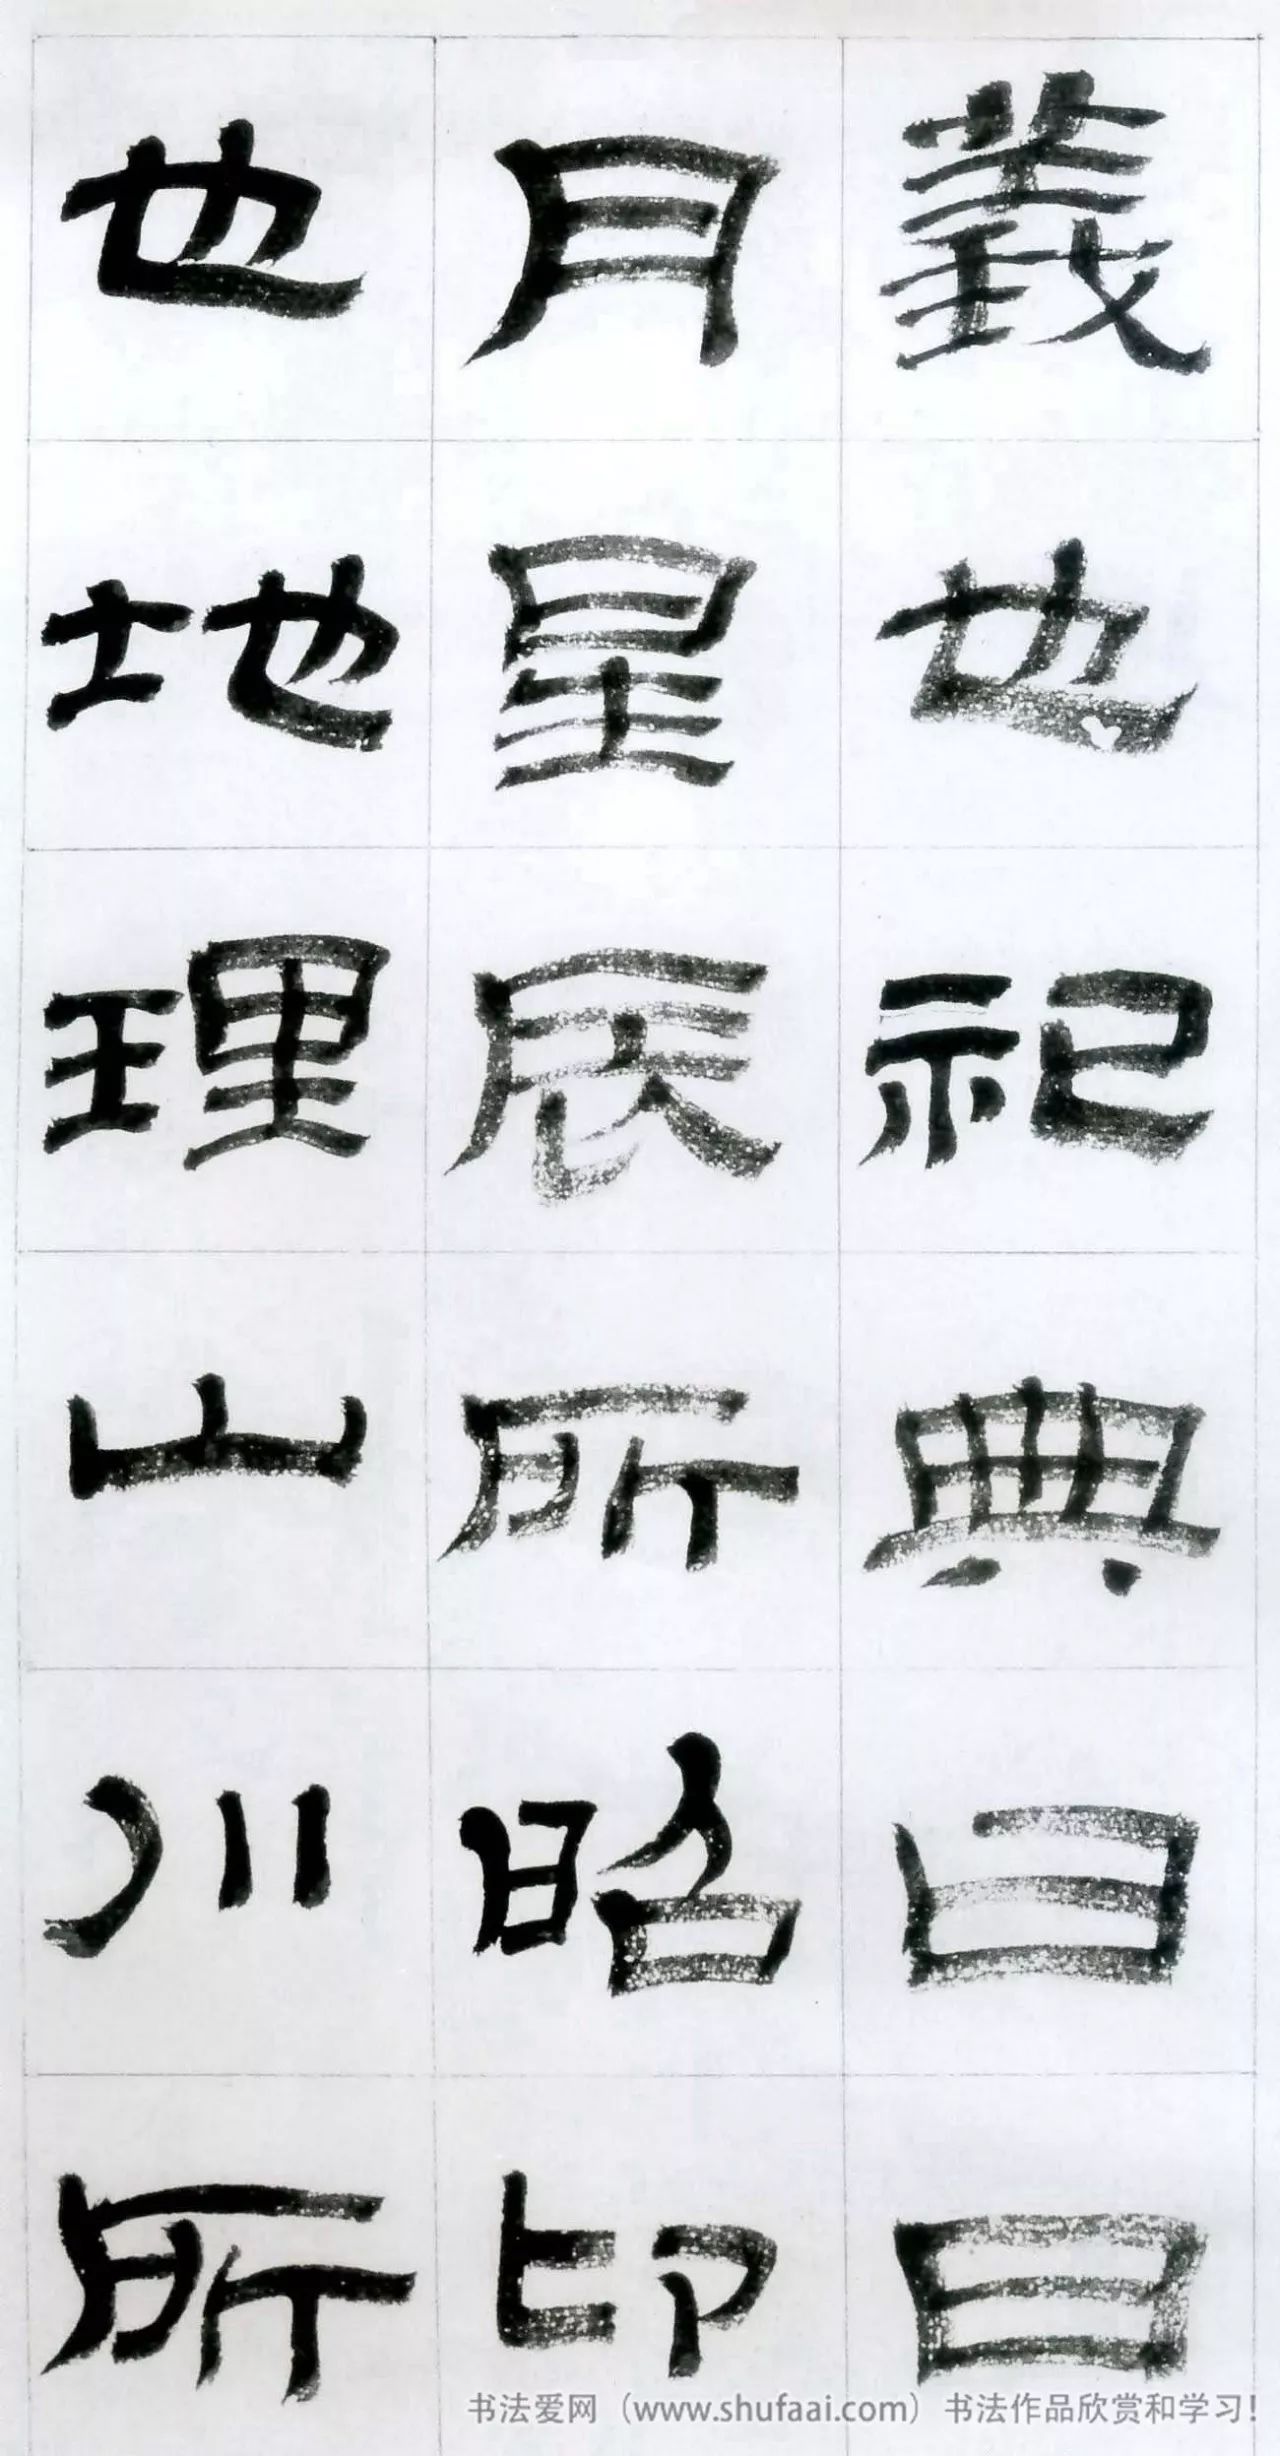 義也祀典曰日
月星辰所昭卬
也地理山川所
书法爱网（www.shufaai.com）书法作品欣赏和学习！